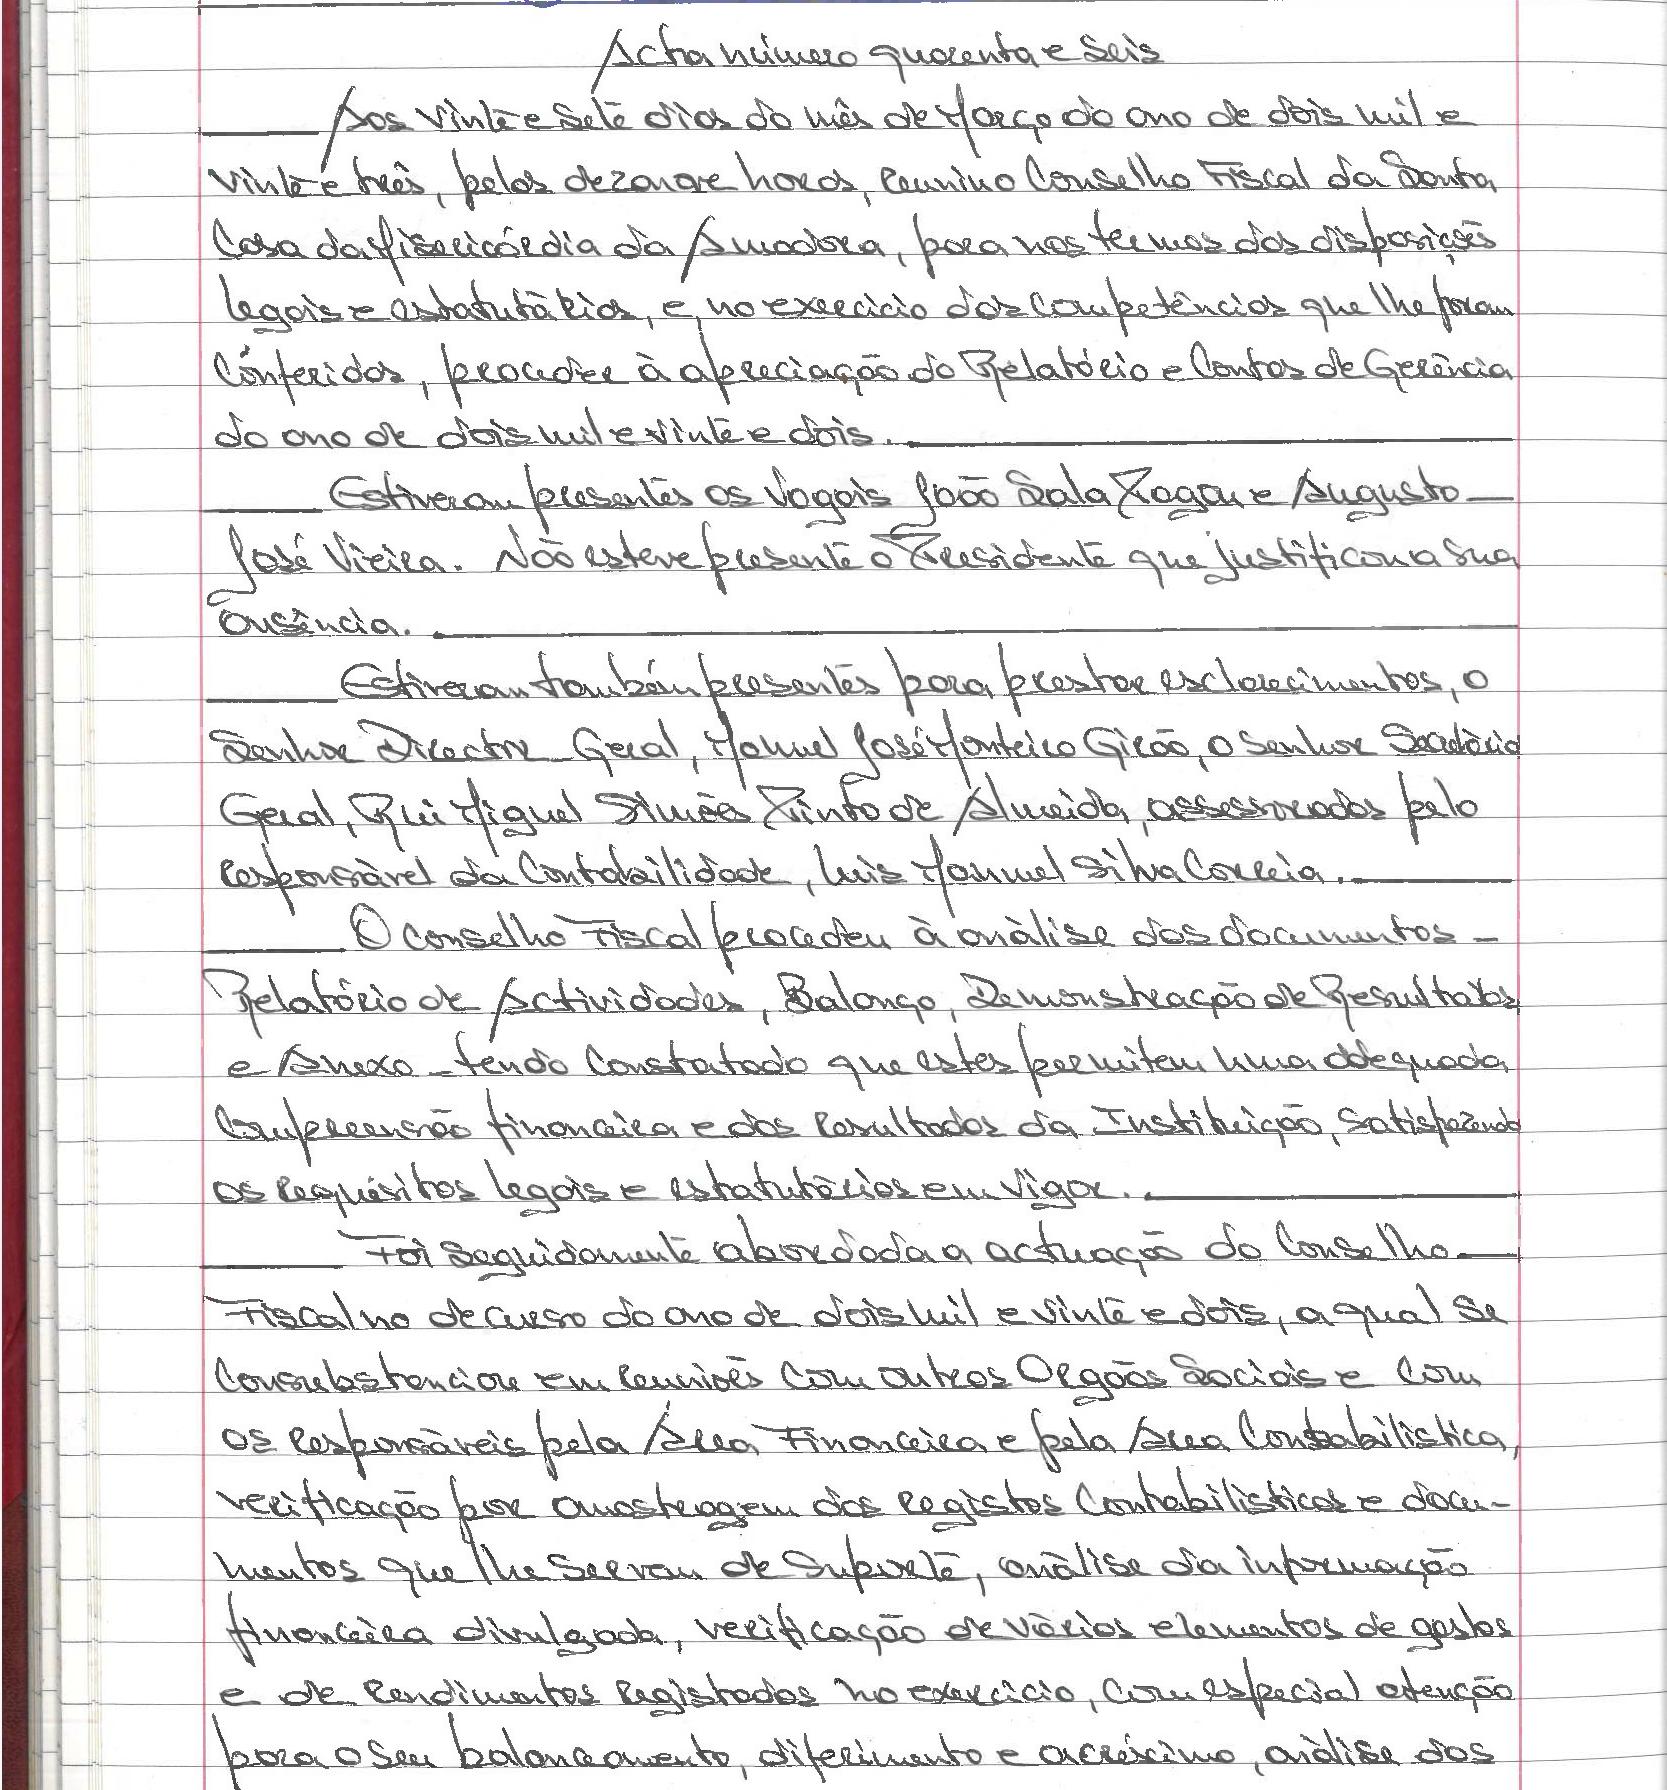 Acta número quarenta e seis
Aos vinte e sete dias do mês de Março do ano de dois mil e
vinte e três, pelas dezanove horas, reuniu o Conselho Fiscal da Santa
Casa da Misericórdia da Amadora, para nos termos das disposições
legais e estatutárias, e, no exercício das competências que lhe foram
conferidas, proceder à apreciação do Relatório e Contas de Gerência
do ano de dois mil e vinte e dois.
Estiveram presentes os Vogais João Sala Pagou e Augusto
José Vieira. Não esteve presente o Presidente que justificou a sua
ausência.
Estiveram também presentes para prestar esclarecimentos, o
Senhor Director-Geral, Manuel José Monteiro Girão, o Senhor Secretário
Geral, Rui Miguel Simões Pinto de Almeida, assessorados pelo
responsável da Contabilidade, Luis Manuel Silva Correia.
O Conselho Fiscal procedeu à análise dos documentos -
Relatório de Actividades, Balanço, Demonstração de Resultados
e Anexo - tendo constatado que estes permitem uma adequada
compreensão financeira e dos resultados da Instituição, satisfazendo
os requisitos legais e estatutários em vigor.
Foi seguidamente abordada a actuação do Conselho
Fiscal no decurso do ano de dois mil e vinte e dois, a qual se
consubstanciou em reuniões com outros Orgãos Sociais e com
os responsáveis pela Área Financeira e pela Área Contabilistica,
verificação por amostragem dos registos contabilísticos e docu-
mentos que lhe servem de suporte, análise da informação
financeira divulgada, verificação de vários elementos de gastos
e de rendimentos registados no exercício, com especial atenção
para o seu balanceamento, diferimento e acréscimo, análise dos